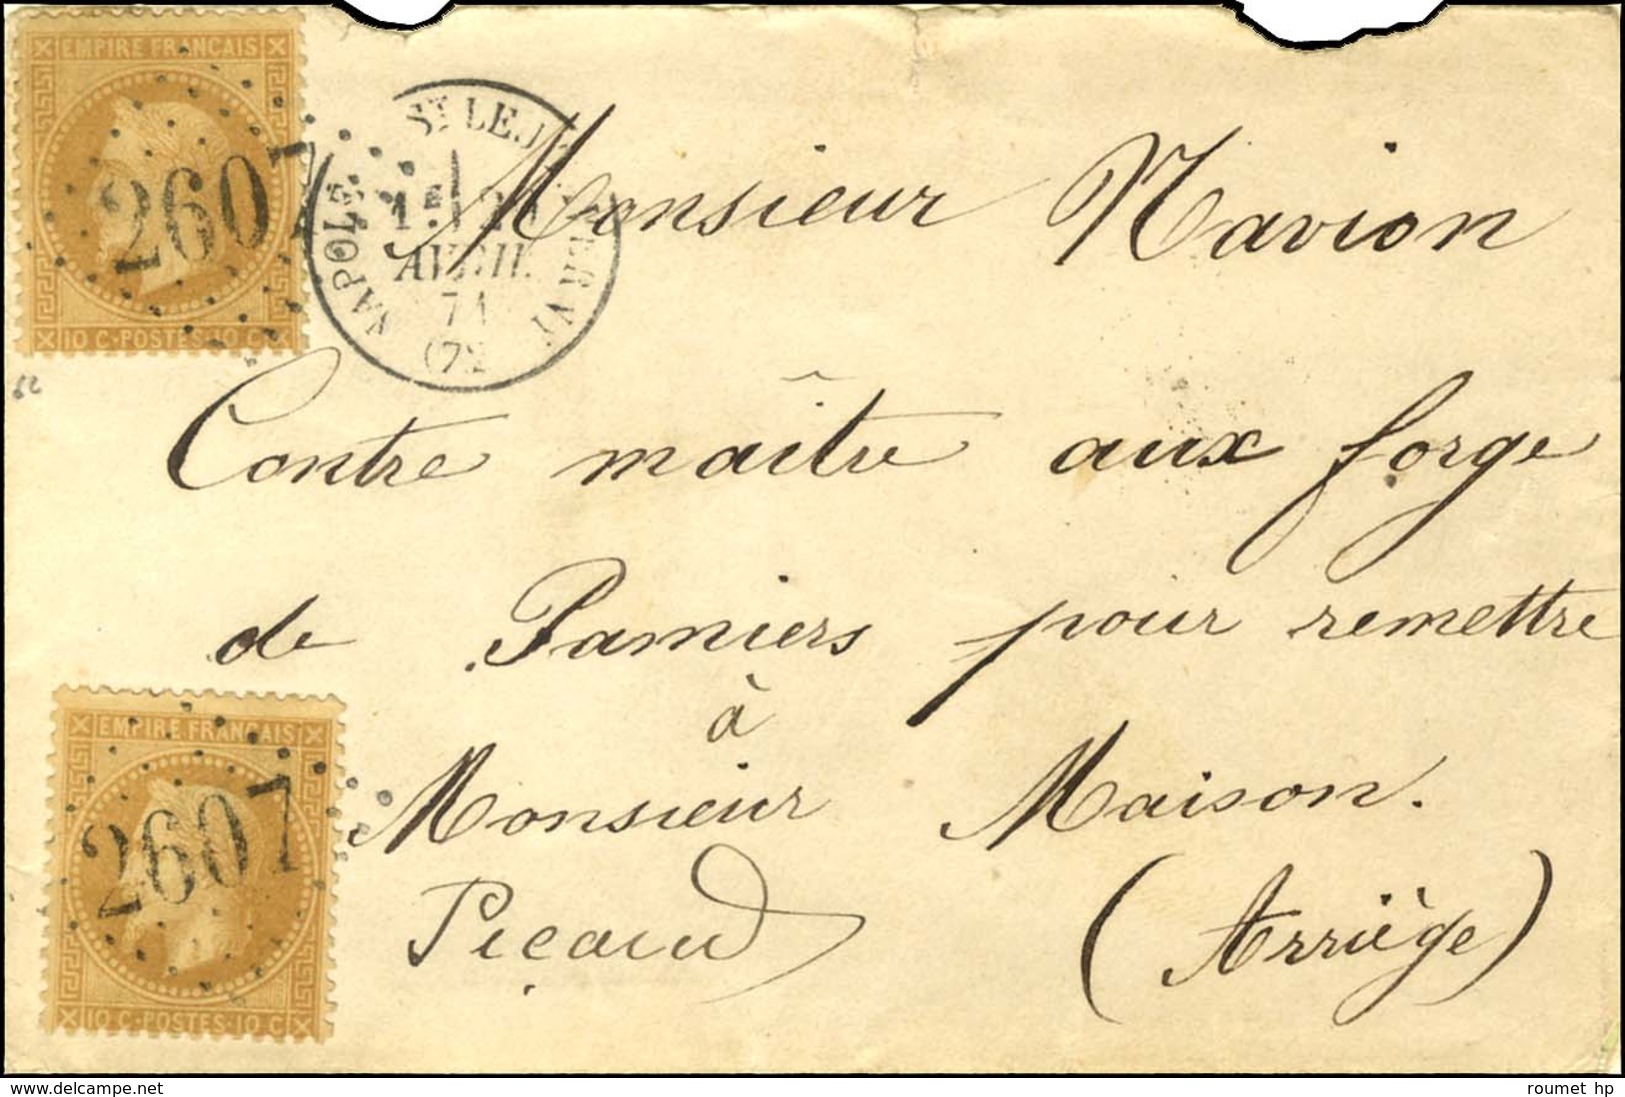 EMPIRE FRANÇAIS
2607
10 C·POSTES·10 C
1E
AVRIL
71
(72
62
Monsieur Navion
Contre maître aux forge
de Pamiers pour remettre
à
Monsieur Maison.
Picaud (Arriège)
EMPIRE FRANÇAIS
2607
10 C·POSTES·10 C
www.delcampe.net
roumet hp